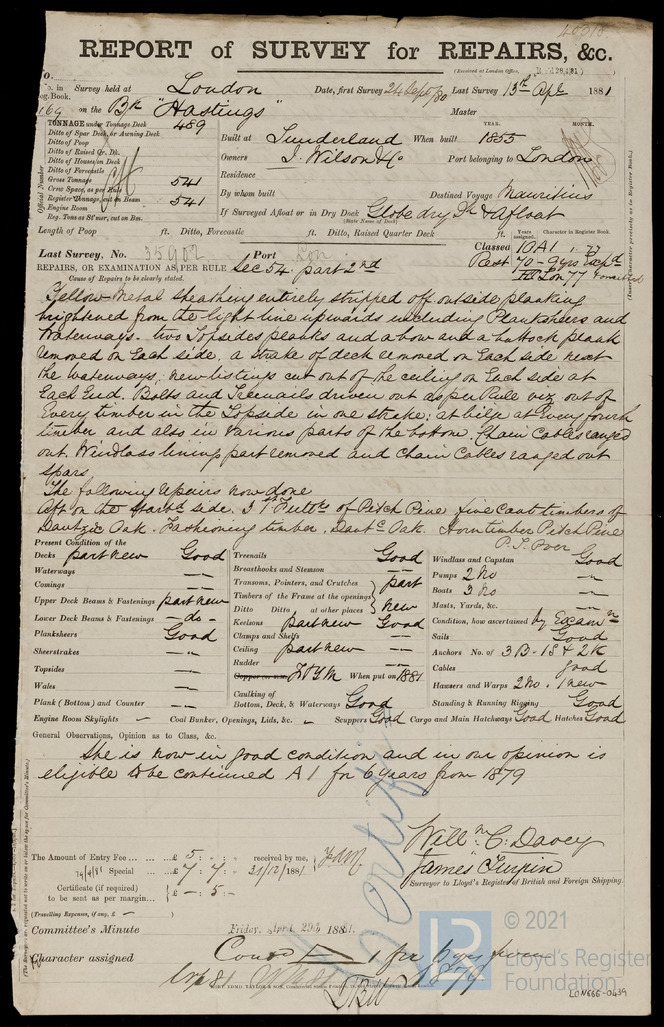 REPORT of SURVEY for REPAIRS, &c.
(Received at London Office,
No. in Survey held at London Date, first Survey 24 Sept/80 Last Survey 13th Apl 1881
Reg. Book.
169 on the Bk "Hastings" Master
TONNAGE under Tonnage Deck 489
Ditto of Spar Deck, or Awning Deck
Ditto of Poop
Ditto of Raised Qr. Dk.
Ditto of Houses on Deck
Ditto of Forecastle
Gross Tonnage 541
Crew Space, as per Rule
Register Tonnage, cut on Beam 541
Engine Room
Reg. Tons as St'mer, cut on Bm.
Official Number
YEAR. MONTH.
Built at Sunderland When built 1855
Owners J. Wilson & Co Port belonging to London
Residence
By whom built Destined Voyage Mauritius
If Surveyed Afloat or in Dry Dock Globe dry Dk & afloat
(State Name of Dock)
Length of Poop ft. Ditto, Forecastle ft. Ditto, Raised Quarter Deck ft.
Years assigned. Character in Register Book.
Last Survey, No. 35902 Port Lon Classed 10A1 . 77
REPAIRS, OR EXAMINATION AS PER RULE Sec 54 part 2nd
Cause of Repairs to be clearly stated.
Rest 70-9yrs Exp'd
Lon 77
Yellow Metal Sheathing entirely stripped off outside planking
brightened from the light line upwards including Planksheers and
Waterways. two Topsides planks and a bow and a buttock plank
removed on Each side, a strake of deck removed on Each side next
the waterways, new listings cut out of the ceiling on Each side at
Each End. Bolts and Treenails driven out as per Rule viz out of
Every timber in the Topside in one strake; at bilge at Every fourth
timber and also in Various parts of the bottom. Chain Cables ranged
out. Windlass lining part removed and chain Cables ranged out
spars
The following repairs now done
Aft on the Starbd side. 3 Futtks of Pitch Pine five cant timbers of
Dantzic Oak. Fashioning timber. Dantc Oak. Horn timber Pitch Pine
P. T. Over
Present Condition of the
Decks part new Good
Waterways —"—
Comings —"—
Upper Deck Beams & Fastenings part new
Lower Deck Beams & Fastenings — do —
Planksheers Good
Sheerstrakes —"—
Topsides —"—
Wales —"—
Plank (Bottom) and Counter —"—
Treenails Good
Breasthooks and Stemson —"—
Transoms, Pointers, and Crutches part
Timbers of the Frame at the openings
Ditto Ditto at other places new
Keelsons part new Good
Clamps and Shelfs —"—
Ceiling part new —"—
Rudder —"—
When put on 1881
Caulking of
Bottom, Deck, & Waterways Good
Windlass and Capstan Good
Pumps 2 No —"—
Boats 3 No —"—
Masts, Yards, &c. —"—
Condition, how ascertained by Examn
Sails Good
Anchors No. of 3 B - 1 S & 2 K
Cables good
Hawsers and Warps 2 No. 1 new
Standing & Running Rigging Good
Engine Room Skylights — Coal Bunker, Openings, Lids, &c. — Scuppers Good Cargo and Main Hatchways Good Hatches Good
General Observations, Opinion as to Class, &c.
She is now in good condition and in our opinion is
eligible to be continued A 1 for 6 years from 1879
Willm C. Davey
James Turpin
Surveyor to Lloyd's Register of British and Foreign Shipping.
The Amount of Entry Fee ... £ 5 : - : - received by me,
Special ... £ 7 : 7 : -
Certificate (if required) £ - : 5 : -
to be sent as per margin...
(Travelling Expenses, if any, £ — )
Committee's Minute Friday, April 29th 1881.
Character assigned Contd A 1 for 6 yrs from
1879
Certif
© 2021
Lloyd's Register
Foundation
LON666-0439